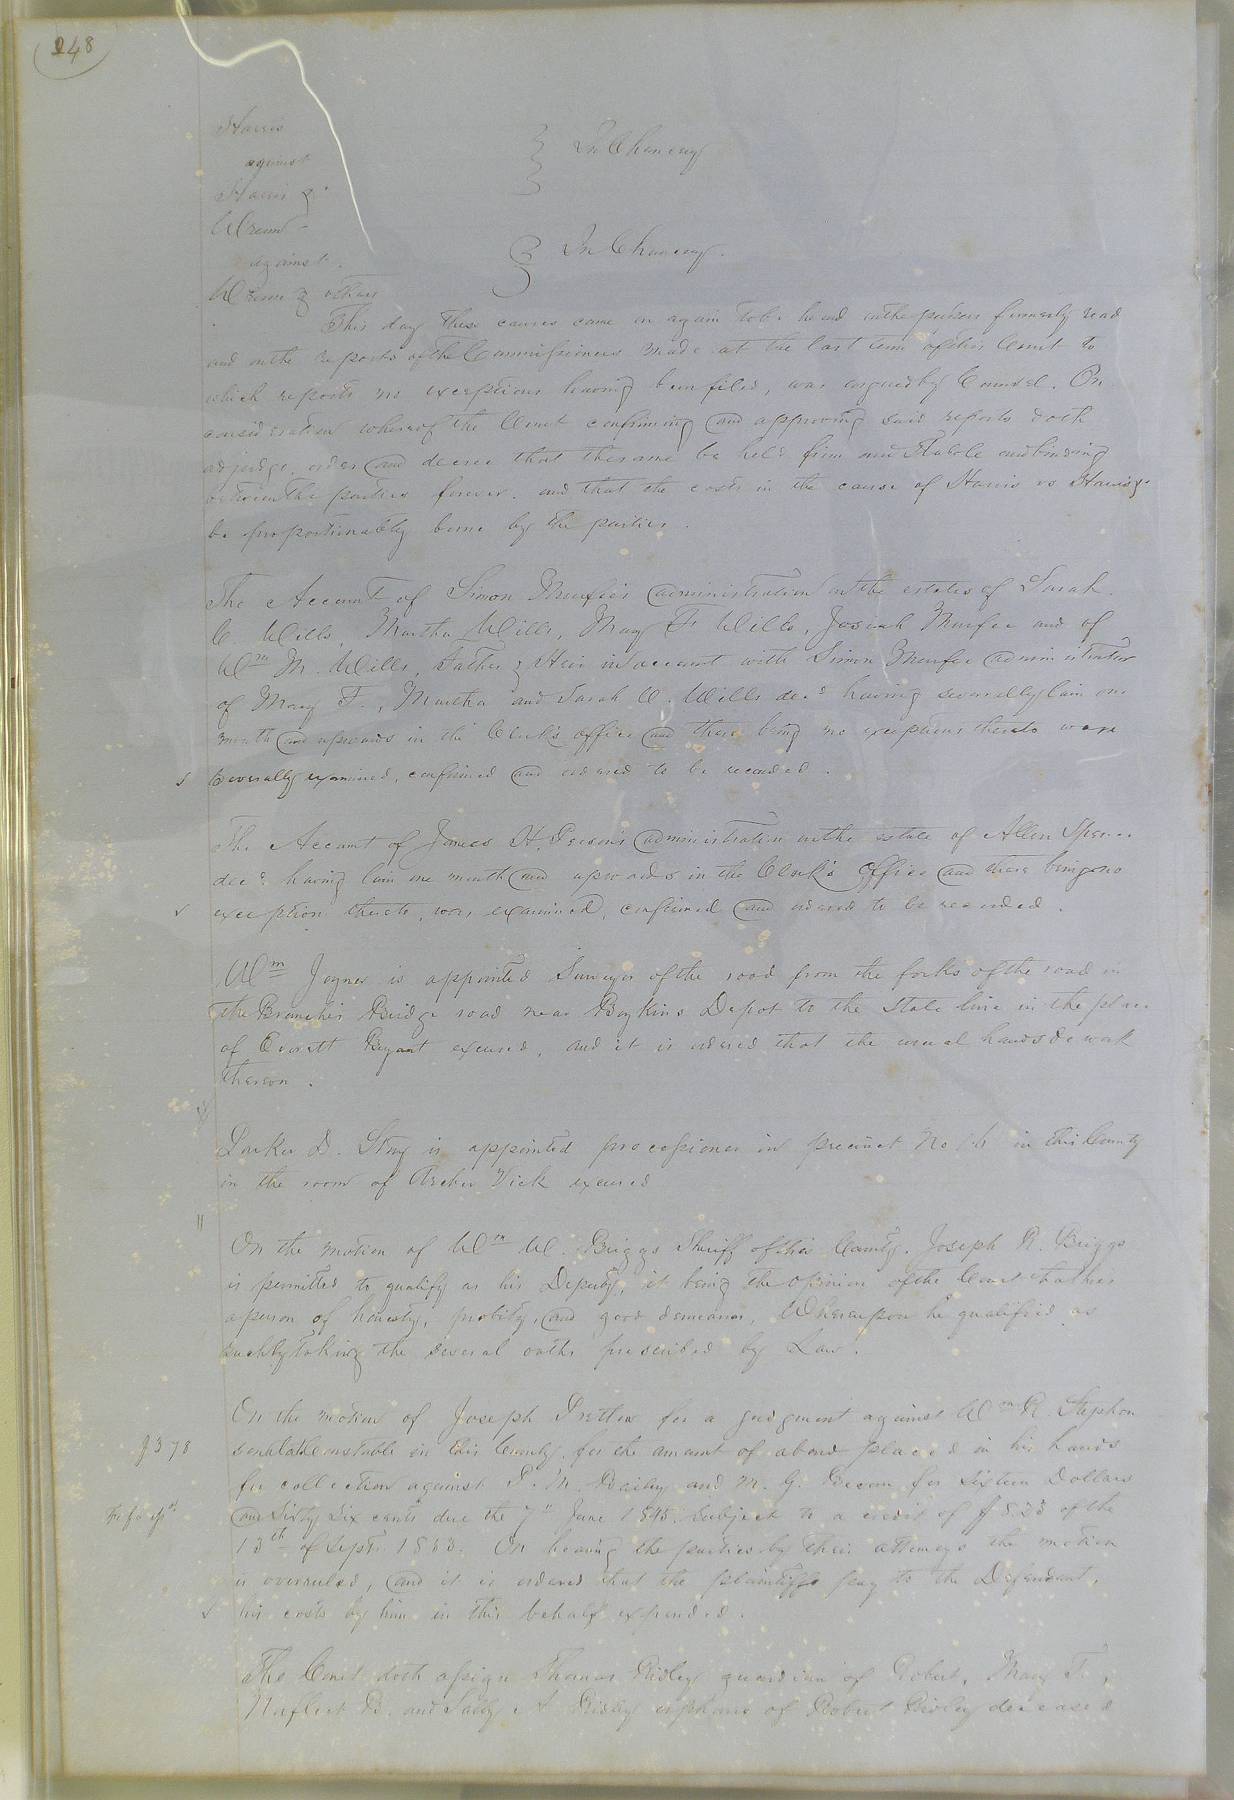 248
Harris
against
Harris &c
} In Chancery
Wrenn
against
Wrenn & others
} In Chancery.
This day these causes came on again to be heard on the papers formerly read
and on the reports of the Commissioners made at the last term of this Court to
which reports no exceptions having been filed, was argued by Counsel. On
consideration whereof the Court confirming and approving said reports doth
adjudge order and decree that the same be held firm and stable and binding
between the parties forever. and that the costs in the cause of Harris vs Harris &c
be proportionably borne by the parties.
The Account of Simon Murfee's administration on the estates of Sarah
C. Wills, Martha Wills, Mary F. Wills, Josiah Murfee and of
Wm M. Wills, Father & Heir in account with Simon Murfee administrator
of Mary F., Martha and Sarah C. Wills decd having severally lain one
month and upwards in the Clerk's office and there being no exceptions thereto were
severally examined, confirmed and ordered to be recorded.
The Account of James H. Person's administration on the estate of Allen
decd having lain one month and upwards in the Clerk's Office and there being no
exception thereto, was examined, confirmed and ordered to be recorded.
Wm Joyner is appointed Surveyor of the road from the forks of the road on
the Branche's Bridge road near Boykins Depot to the State line in the place
of Everett Bryant excused, and it is ordered that the usual hands do work
thereon.
Parker D. Story is appointed processioner in precinct No 16 in this County
in the room of Archer Vick excused
On the motion of Wm W. Briggs Sheriff of this County. Joseph R. Briggs
is permitted to qualify as his Deputy, it being the opinion of the Court that he is
a person of honesty, probity, and good demeanor, Whereupon he qualified as
such by taking the several oaths prescribed by Law.
On the motion of Joseph Pretlow for a judgment against Wm R. Stephen
son late Constable in this County, for the amount of a bond placed in his hands
$3.78
for collection against P. M. Bailey and M. G. for Sixteen Dollars
and Sixty Six cents due the 7th June 1845. Subject to a credit of $8.23 of the
13th of Sept. On hearing the parties by their attorneys the motion
is overruled, and it is ordered that the plaintiff pay to the Defendant,
his costs by him in this behalf expended.
The Court doth assign Thomas Ridley guardian of Robert, Mary F.,
Norfleet B. and Sally A Ridley orphans of Robert Ridley deceased